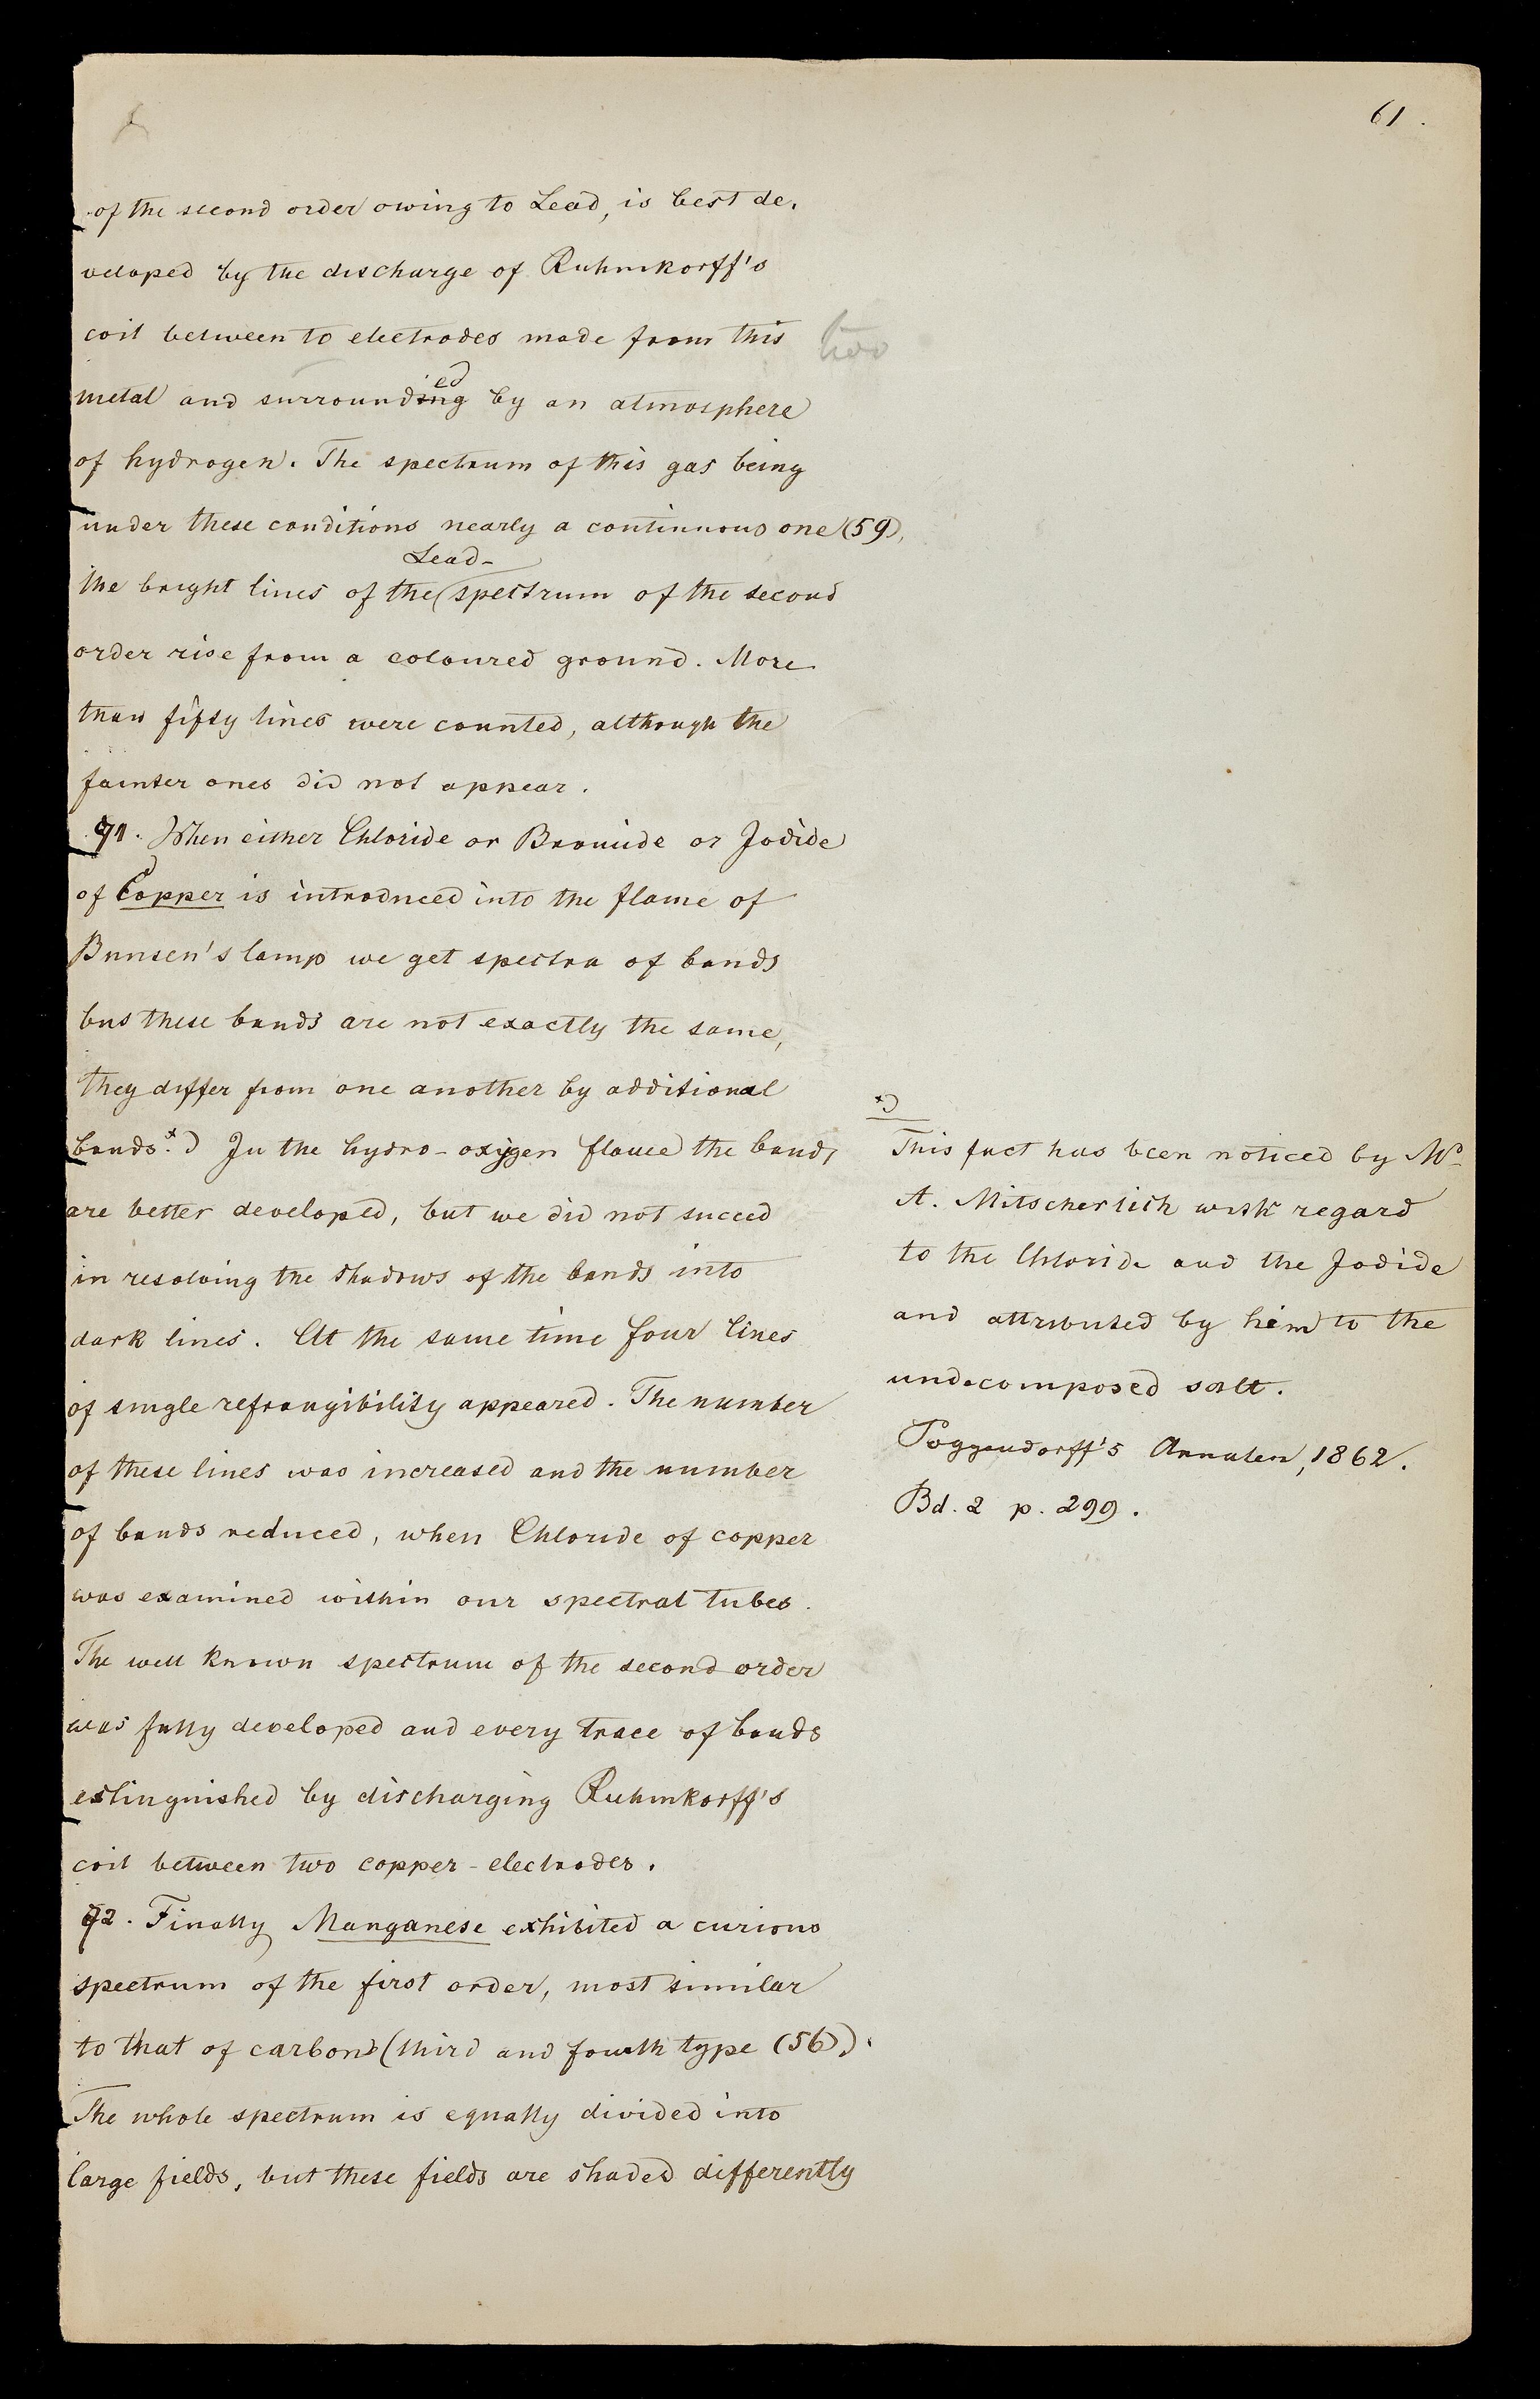 61.
of the second order owing to Lead, is best de-
veloped by the discharge of Ruhmkorff's
coil between to electrodes made from this two
metal and surrounding ed by an atmosphere
of hydrogen. The spectrum of this gas being
under these conditions nearly a continuous one (59),
Lead-
the bright lines of the spectrum of the second
order rise from a coloured ground. More
than fifty lines were counted, although the
fainter ones did not appear.
71. When either Chloride or Bromide or Jodide
of Copper is introduced into the flame of
Bunsen's lamp we get spectra of bands
but these bands are not exactly the same,
they differ from one another by additional
bands.x) In the hydro-oxygen flame the bands
are better developed, but we did not succeed
in resolving the shadows of the bands into
dark lines. At the same time four lines
of single refrangibility appeared. The number
of these lines was increased and the number
of bands reduced, when Chloride of copper
was examined within our spectral tubes.
The well known spectrum of the second order
was fully developed and every trace of bands
extinguished by discharging Ruhmkorff's
coil between two copper-electrodes.
72. Finally Manganese exhibited a curious
spectrum of the first order, most similar
to that of carbon (third and fourth type (56)).
The whole spectrum is equally divided into
large fields, but these fields are shaded differently
x)
This fact has been noticed by Mr.
A. Mitscherlich with regard
to the Chloride and the Jodide
and attributed by him to the
undecomposed salt.
Poggendorff's Annalen, 1862.
Bd. 2 p. 299.